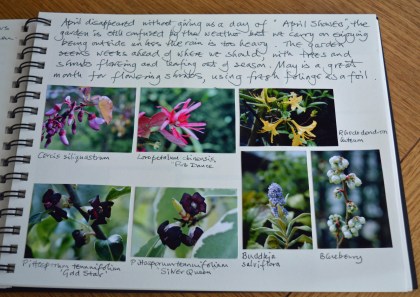 April disappeared without giving us a day of "April Showers", the
garden is still confused by the weather but we carry on enjoying
being outside unless the rain is too heavy. The garden
seems weeks ahead of where we should, with trees and
shrubs flowering and leafing out of season. May is a great
month for flowering shrubs, using fresh foliage as a foil.
Cercis siliquastrum
Loropetalum chinensis,
Fire Dance
Rhododendron
luteum
Pittosporum tenuifolium
'Gold Star'
Pittosporum tenuifolium
'Silver Queen'
Buddleja
salviifolia
Blueberry